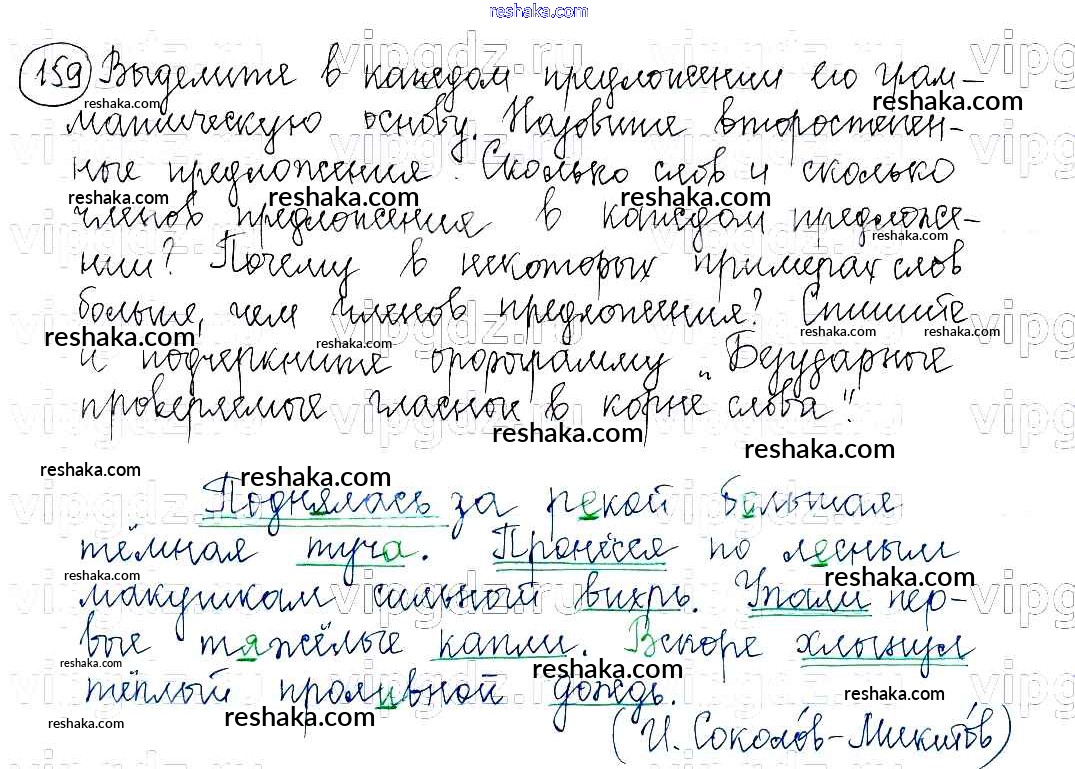 reshaka.com
159 Выделите в каждом предложении его грам-
матическую основу. Назовите второстепен-
ные предложения. Сколько слов и сколько
членов предложения в каждом предложе-
нии? Почему в некоторых примерах слов
больше, чем членов предложения? Спишите
и подчеркните орфограмму „Безударные
проверяемые гласные в корне слова".
Поднялась за рекой большая
тёмная туча. Пронёсся по лесным
макушкам сильный вихрь. Упали пер-
вые тяжёлые капли. Вскоре хлынул
тёплый проливной дождь.
(И. Соколо́в-Микито́в)